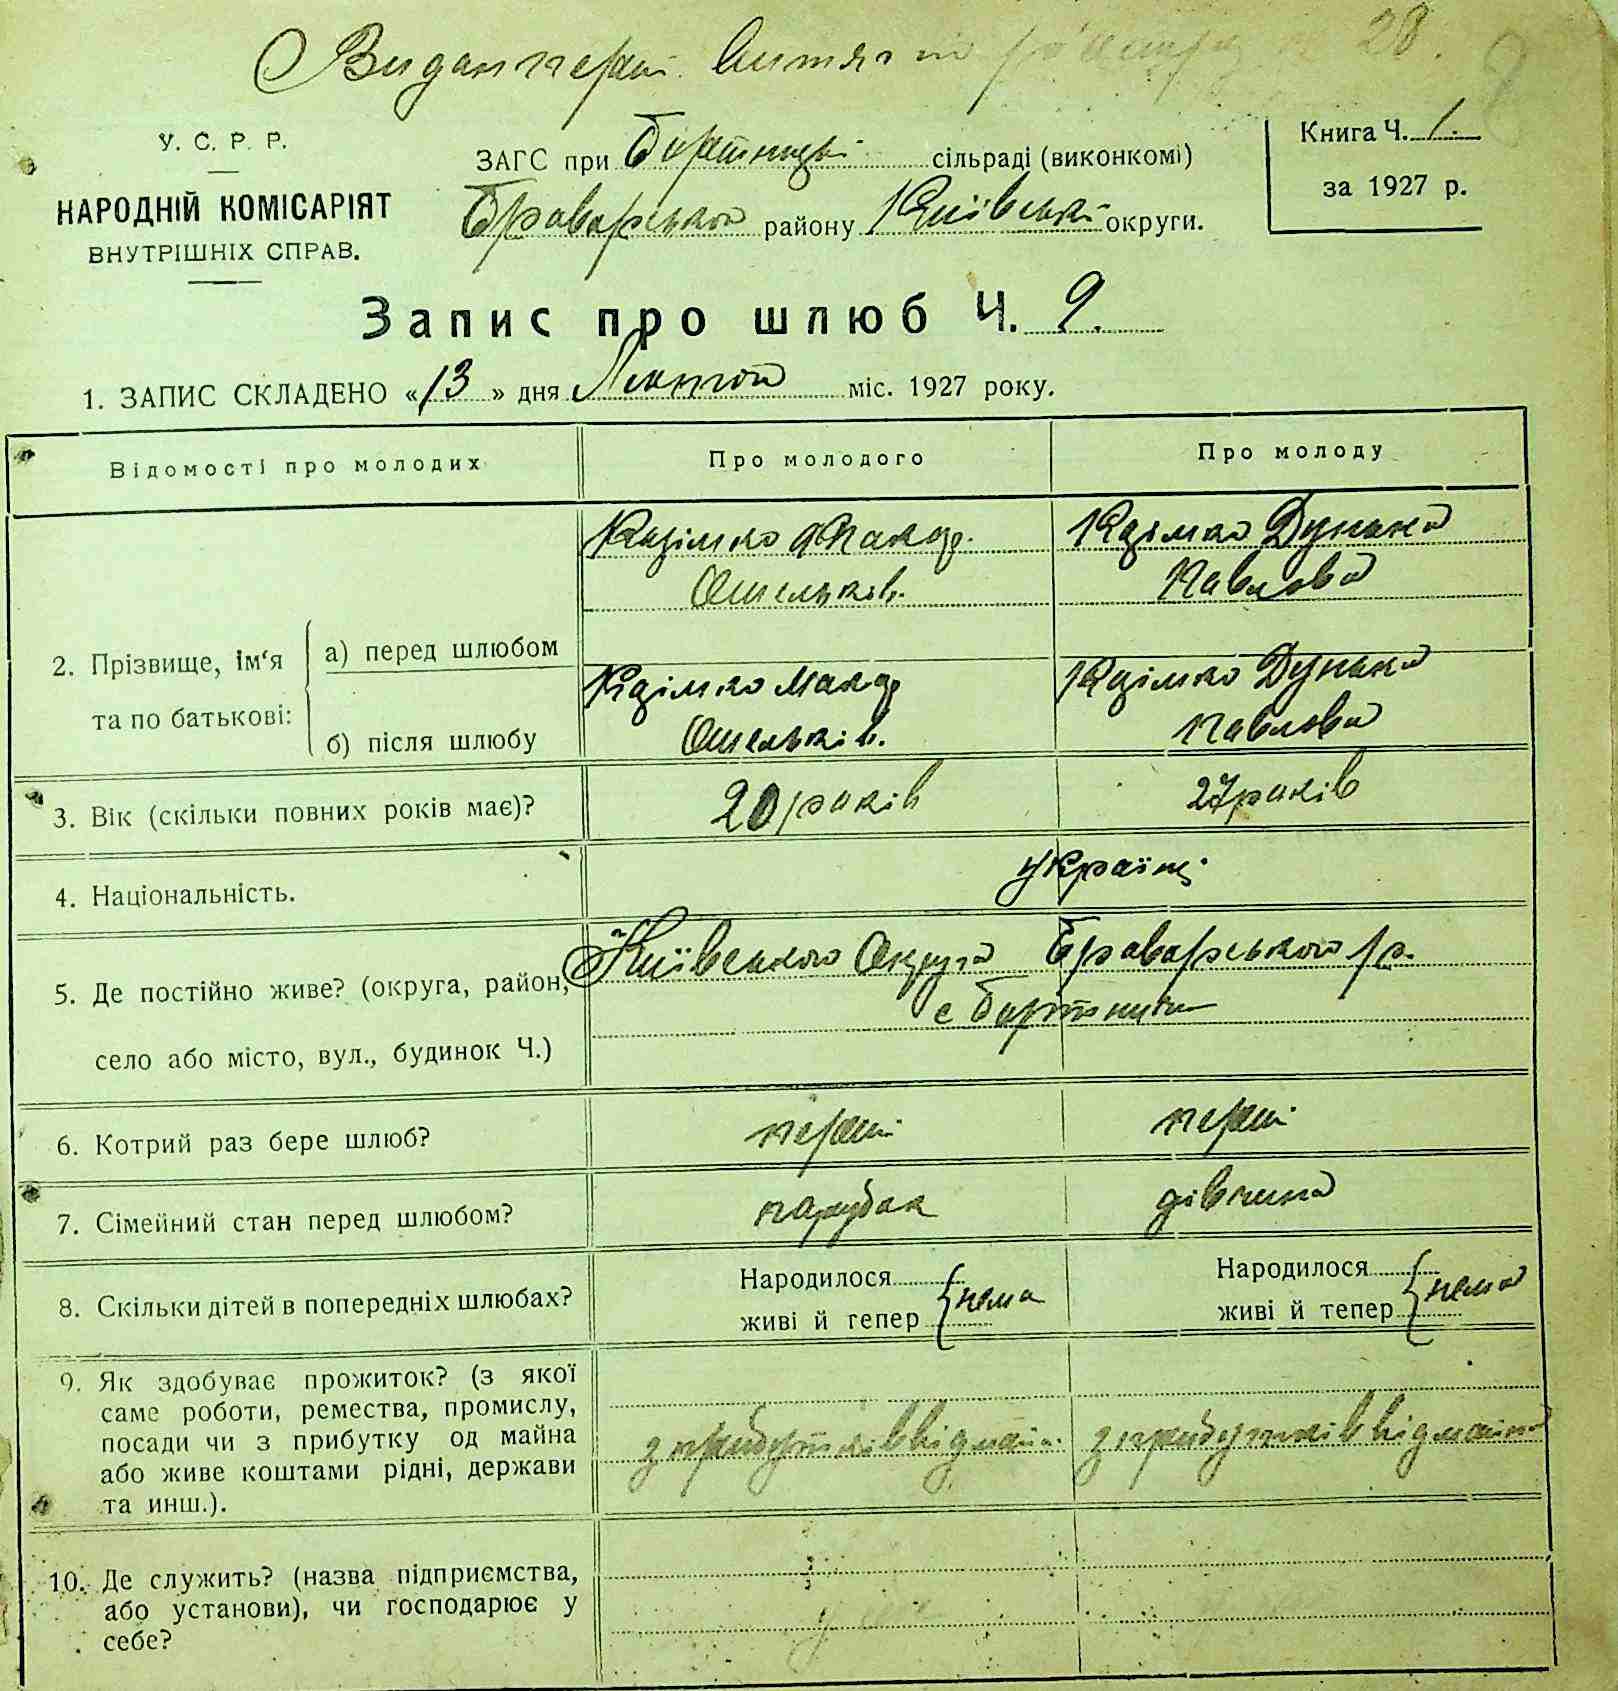 Видан перш. витяг по
28.
У. С. Р. Р.
НАРОДНІЙ КОМІСАРІЯТ
ВНУТРІШНІХ СПРАВ.
ЗАГС при Бортницькі сільраді (виконкомі)
Броварського району Київської округи.
Книга Ч. 1.
за 1927 р.
Запис про шлюб Ч. 9.
1. ЗАПИС СКЛАДЕНО «13» дня Лютого міс. 1927 року.
Відомості про молодих
Про молодого
Про молоду
2. Прізвище, ім'я та по батькові:
а) перед шлюбом
Кизімко Макар
Омельків.
Кизімко Дунька
Павлова
б) після шлюбу
Кизімко Макар
Омельків.
Кизімко Дунька
Павлова
3. Вік (скільки повних років має)?
20 років
27 років
4. Національність.
Українці
5. Де постійно живе? (округа, район,
село або місто, вул., будинок Ч.)
Київського Округа Броварського р.
с Бортничі
6. Котрий раз бере шлюб?
перш.
перш.
7. Сімейний стан перед шлюбом?
парубак
дівчина
8. Скільки дітей в попередніх шлюбах?
Народилося
живі й тепер
{нема
Народилося
живі й тепер
{нема
9. Як здобуває прожиток? (з якої
саме роботи, ремества, промислу,
посади чи з прибутку од майна
або живе коштами рідні, держави
та инш.).
з прибутків від майна
з прибутків від майна
10. Де служить? (назва підприємства,
або установи), чи господарює у
себе?